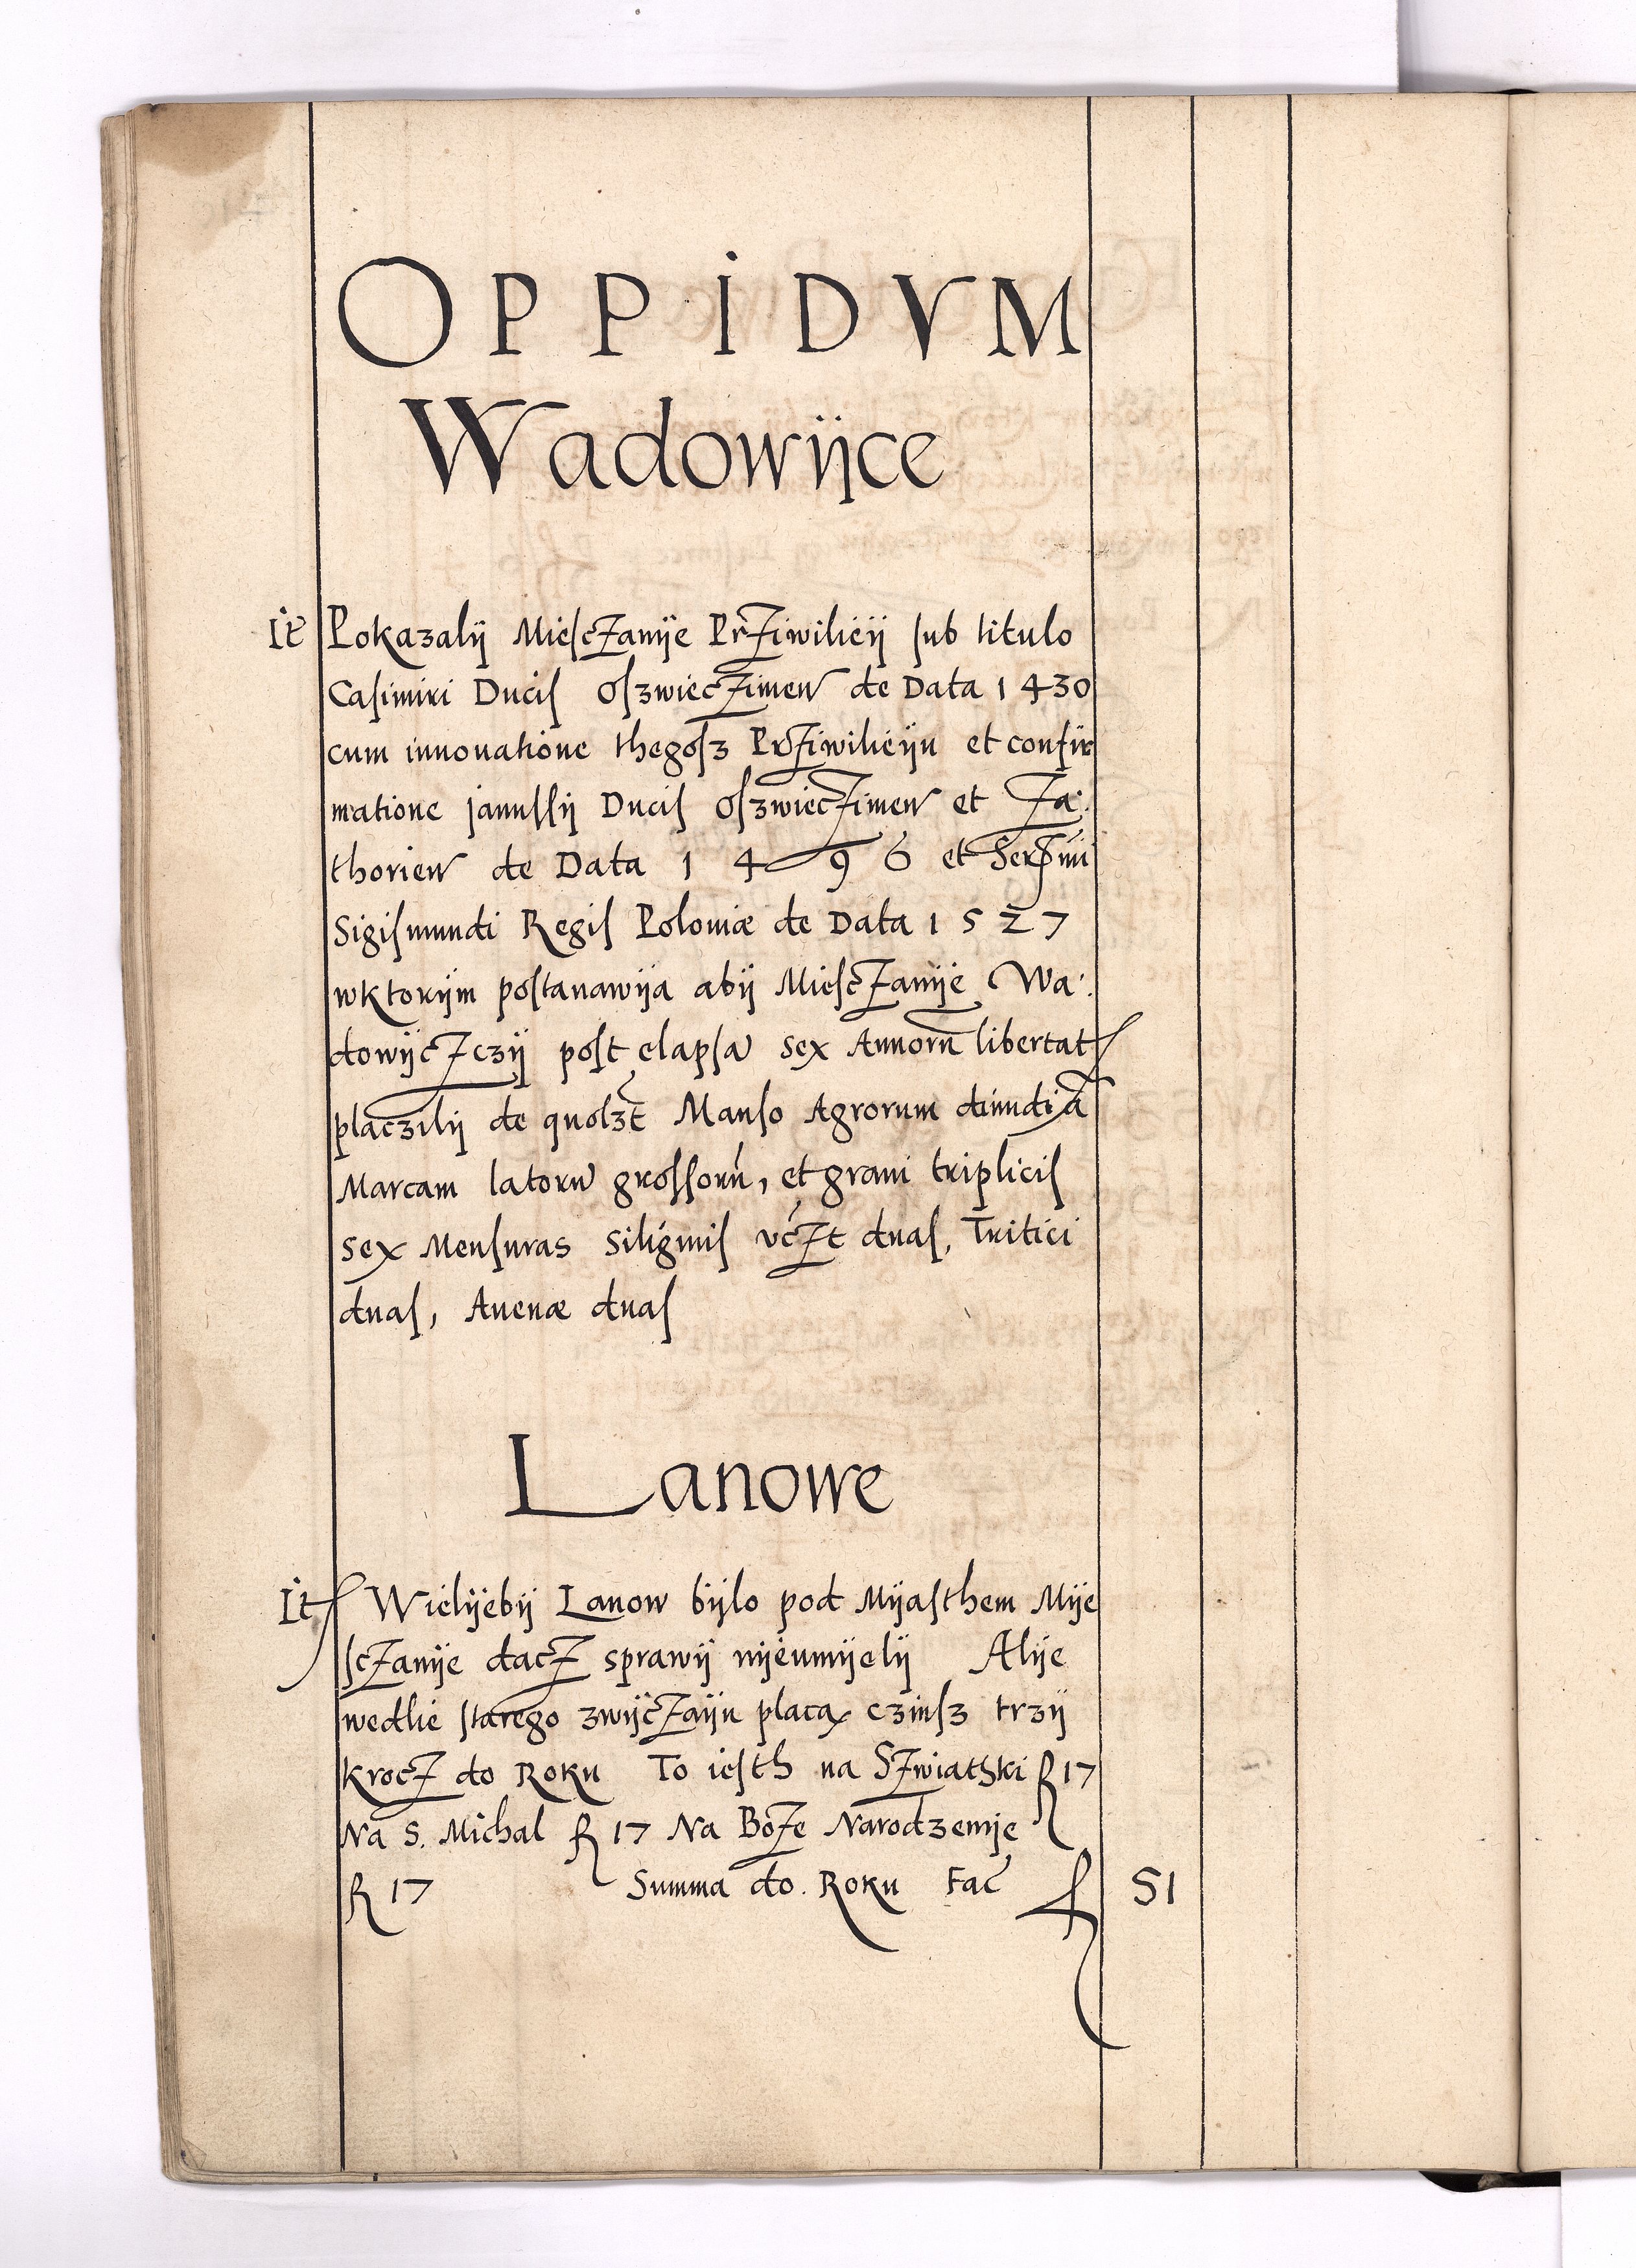 OPPIDVM
Wadowijce
It Pokazalij Miesczanije Prziwilieij sub titulo
Casimiri Ducis Oszwieczimen de Data 1430
cum innouatione thegosz Prziwilieiju et confir
matione janussij Ducis Oszwieczimen et Za:
thorien de Data 1496 et Serssimi
Sigismundi Regis Poloniæ de Data 1527
wktorijm postanawija abij Miesczanije Wa:
dowijczczij post elapsa sex Annorũ libertat
placzilij de quoszt Manso Agrorum dimidiã
Marcam latoru grossorũ, et grani triplicis
sex Mensuras Siliginis vczt duas, Tritici
duas, Auenæ duas
Lanowe
It Wielijebij Lanow bijlo pod Mijasthem Mije
sczanije dacz sprawij nijeumijelij Alije
wedlie starego zwijczaiju placą czinsz trzij
krocz do Roku To iesth na Szwiathki fl 17
Na S. Michal fl 17 Na Boze Narodzenije
fl 17 Summa do Roku Fac fl 51